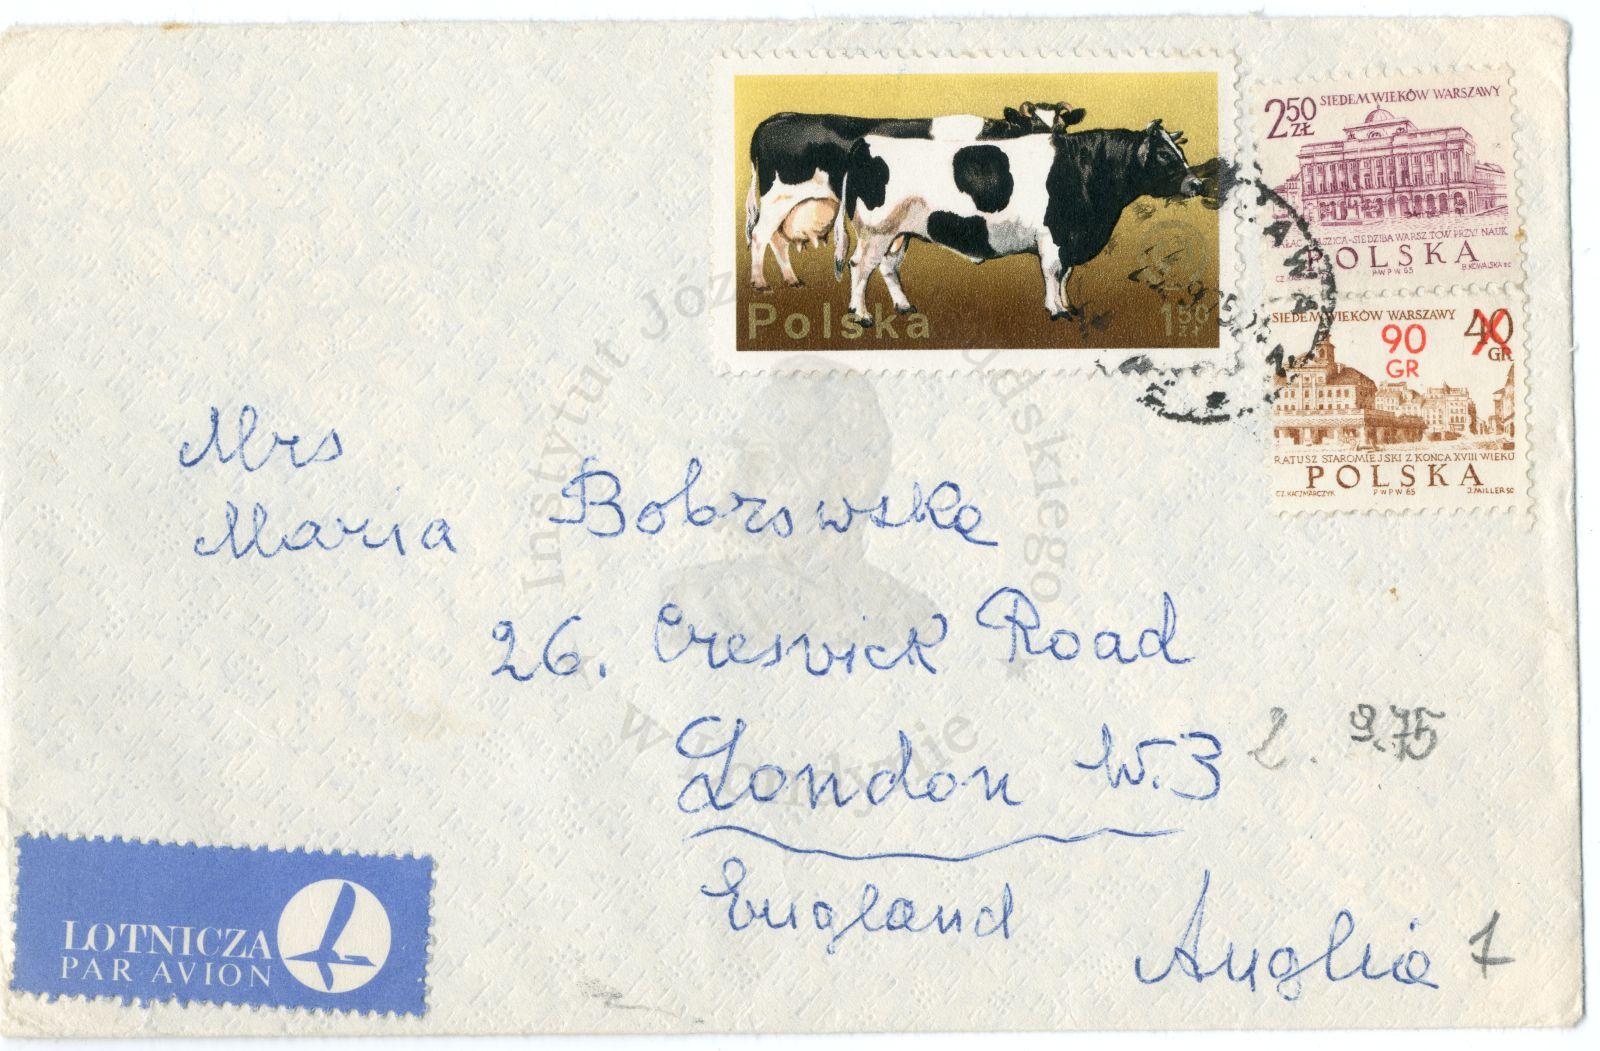 Polska
1.50
ZŁ
2.50
ZŁ
SIEDEM WIEKÓW WARSZAWY
PAŁAC STASZICA-SIEDZIBA WARSZ TOW. PRZYJ NAUK
POLSKA
PWPW 65
B. KOWALSKA SC
SIEDEM WIEKÓW WARSZAWY
40
GR
90
GR
RATUSZ STAROMIEJSKI Z KOŃCA XVIII WIEKU
POLSKA
CZ. KACZMARCZYK
PWPW 65
J. MILLER SC
Mrs
Maria Bobrowska
26. Creswick Road
London W.3
2. 9.75
England
Anglia 1
LOTNICZA
PAR AVION
Instytut Józefa Piłsudskiego
w Londynie